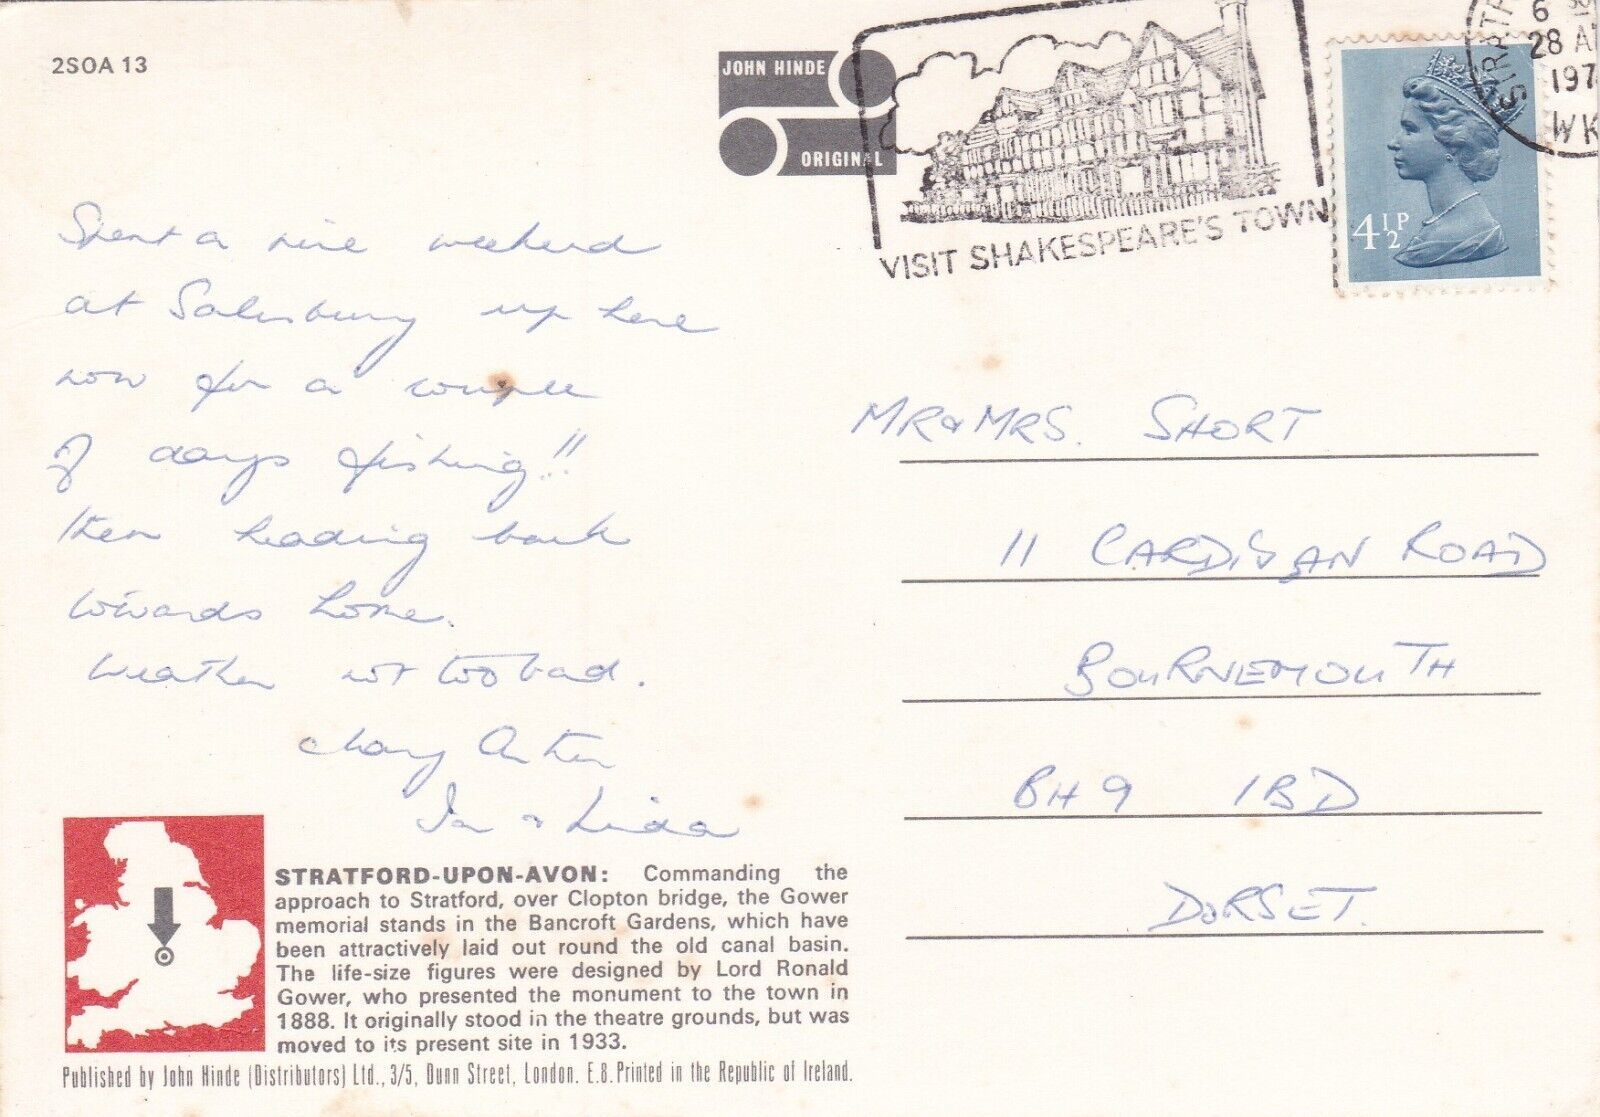 2SOA 13
JOHN HINDE
ORIGINAL
VISIT SHAKESPEARE'S TOWN
STRATF
6
28 A
197
WK
4½P
Spent a nice weekend
at Salisbury up here
now for a couple
of days fishing!!
then heading back
towards home.
Weather not too bad.
Ian & Linda
MR & MRS. SHORT
11 CARDIGAN ROAD
BOURNEMOUTH
BH9 1BD
DORSET.
STRATFORD-UPON-AVON: Commanding the
approach to Stratford, over Clopton bridge, the Gower
memorial stands in the Bancroft Gardens, which have
been attractively laid out round the old canal basin.
The life-size figures were designed by Lord Ronald
Gower, who presented the monument to the town in
1888. It originally stood in the theatre grounds, but was
moved to its present site in 1933.
Published by John Hinde (Distributors) Ltd., 3/5, Dunn Street, London. E.8. Printed in the Republic of Ireland.